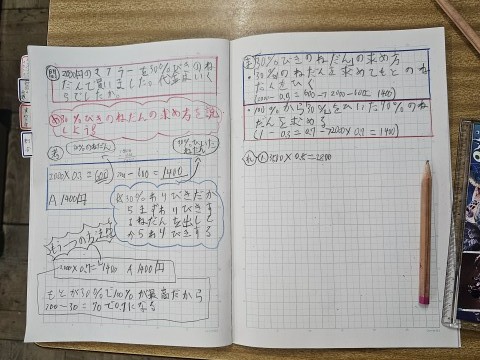 問 2000円のマフラーを30%びきのね
だんで買いました。代金はいく
らでしたか。
め 30%びきのねだんの求め方を説
しよう。
考
30%のねだん
2000×0.3=600
2000-600=1400
A.1400円
30%わりびきだか
らまずわりびきす
るねだんを出して
からわりびきする
もう一つの方法
2000×0.7=1400 A.1400円
もとが
100-30=70で0.7になる
ま 30%びきのねだんの求め方
・30%のねだんを求めてもとのね
だんをひく
2000×0.3=600→2000-600=1400
・100%から30%をひいた70%のね
だんを求める
(1-0.3=0.7→2000×0.7=1400)
れ ①